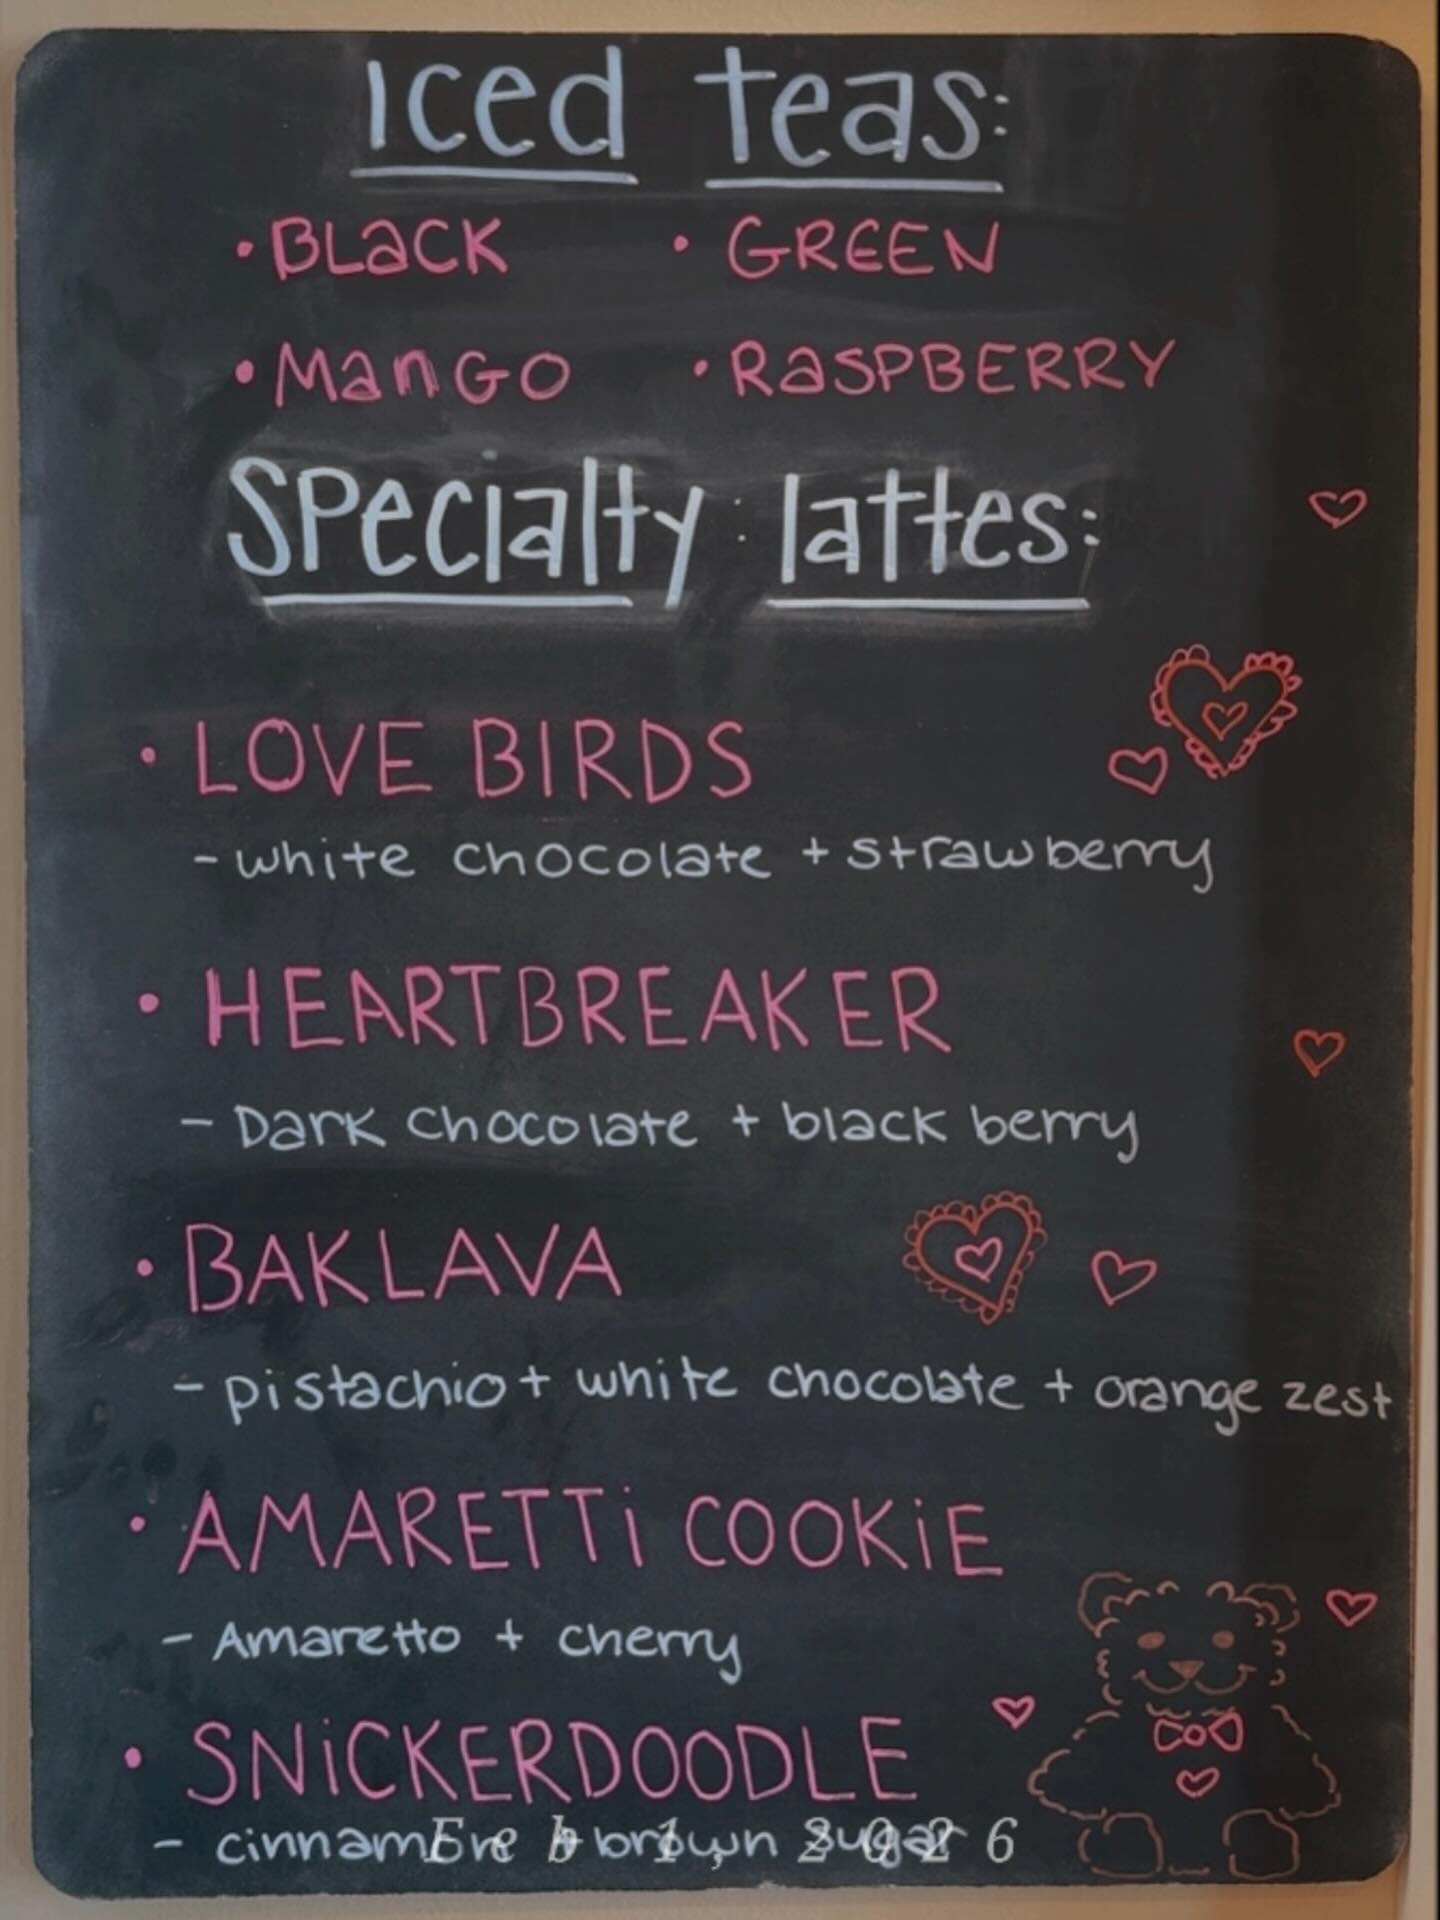 Iced teas:
• BLaCK • GREEN
• ManGO • RaSPBERRY
Specialty lattes:
• LOVE BIRDS
- white chocolate + strawberry
• HEARTBREAKER
- Dark chocolate + black berry
• BAKLAVA
- pistachio + white chocolate + orange zest
• AMARETTi COOKiE
- Amaretto + cherry
• SNiCKERDOODLE
- cinnamon + brown sugar
Feb 1, 2026